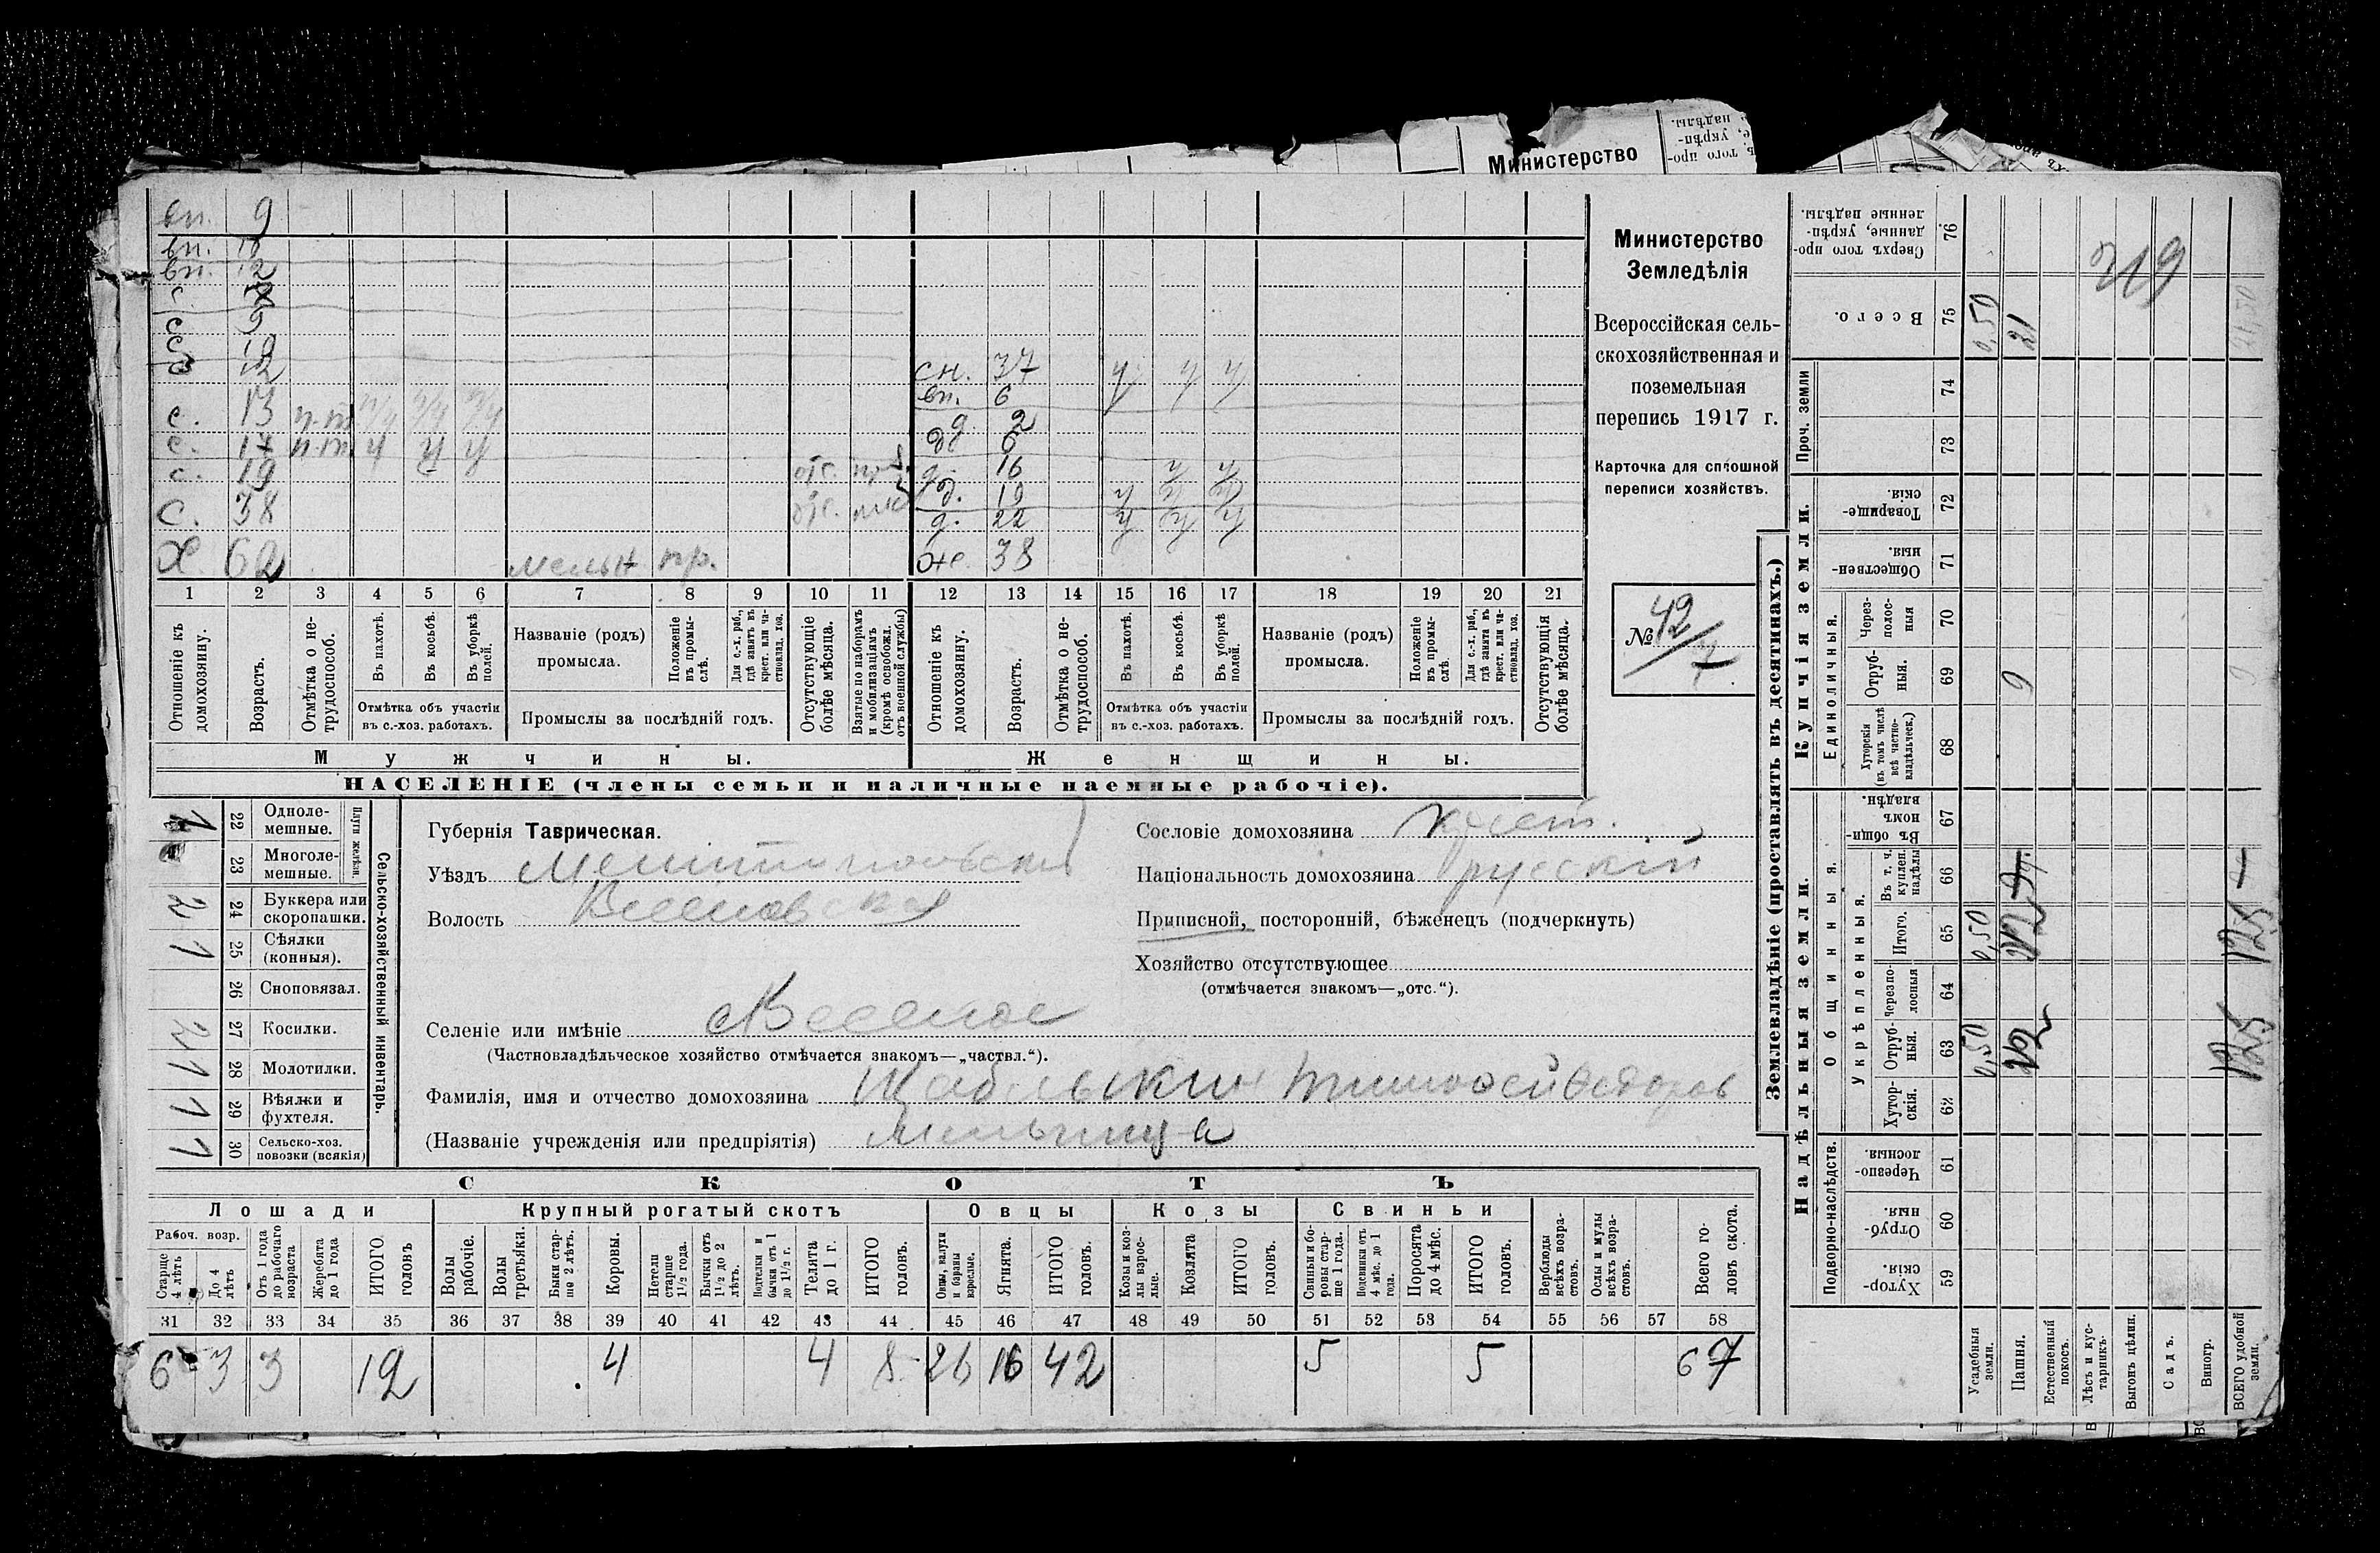 Министерство
вп. 9
вп. 10
вп. 12
с.
с 9
с 10
с 12
сн. 37 у у у
вп. 6
с. 13 п.т 1/4 1/4 1/4
д 2
с. 17 п.т. ч ч ч
д 6
с. 19 отс.
д. 16 ч ч
д. 19 у у у
с. 38 отс.
д. 22 у у у
Х. 62 мельн пр.
же. 38
1 2 3 4 5 6 7 8 9 10 11 12 13 14 15 16 17 18 19 20 21
Отношеніе къ домохозяину.
Возрастъ.
Отмѣтка о не-трудоспособ.
Въ пахотѣ.
Въ косьбѣ.
Въ уборкѣ полей.
Отмѣтка объ участіи
въ с.-хоз. работахъ.
Названіе (родъ)
промысла.
Положеніе въ промы-слѣ.
Для с.-х. раб., гдѣ занятъ въ крест. или ча-стновлад. хоз.
Промыслы за послѣдній годъ.
Отсутствующіе болѣе мѣсяца.
Взятые по наборамъ и мобилизаціямъ (кромѣ освобожд. отъ военной службы)
Отношеніе къ домохозяину.
Возрастъ.
Отмѣтка о не-трудоспособ.
Въ пахотѣ.
Въ косьбѣ.
Въ уборкѣ полей.
Отмѣтка объ участіи
въ с.-хоз. работахъ.
Названіе (родъ)
промысла.
Положеніе въ промы-слѣ.
Для с.-х. раб., гдѣ занята въ крест. или ча-стновлад. хоз.
Промыслы за послѣдній годъ.
Отсутствующія болѣе мѣсяца.
Мужчины. Женщины.
НАСЕЛЕНІЕ (члены семьи и наличные наемные рабочіе).
Министерство
Земледѣлія
Всероссійская сель-
скохозяйственная и
поземельная
перепись 1917 г.
Карточка для сплошной
переписи хозяйствъ.
№ 42/7
Сельско-хозяйственный инвентарь.
Плуги желѣзн.
22 Одноле-мешные. 1
23 Многоле-мешные.
24 Буккера или скоропашки. 2
25 Сѣялки (конныя). 1
26 Сноповязал.
27 Косилки. 2
28 Молотилки. 1
29 Вѣялки и фухтеля. 1
30 Сельско-хоз. повозки (всякія) 1
Губернія Таврическая.
Уѣздъ Мелитопольскій
Волость Веселовская
Селеніе или имѣніе Веселое
(Частновладѣльческое хозяйство отмѣчается знакомъ—„частвл.“).
Фамилія, имя и отчество домохозяина Щабелькин Тимофей Федоров
(Названіе учрежденія или предпріятія) Мельница
Сословіе домохозяина крест.
Національность домохозяина русскій
Приписной, посторонній, бѣженецъ (подчеркнуть)
Хозяйство отсутствующее
(отмѣчается знакомъ—„отс.“).
СКОТЪ
Лошади Крупный рогатый скотъ Овцы Козы Свиньи
Рабоч. возр.
Старше 4 лѣтъ
До 4 лѣтъ
Отъ 1 года до рабочаго возраста
Жеребята до 1 года
ИТОГО головъ
Волы рабочіе.
Волы третьяки.
Быки стар-ше 2 лѣтъ.
Коровы.
Нетели старше 1½ года.
Бычки отъ 1½ до 2 лѣтъ.
Подтелки и бычки отъ 1 до 1½ г.
Телята до 1 г.
ИТОГО головъ.
Овцы, валухи и бараны взрослые.
Ягнята.
ИТОГО головъ.
Козы и коз-лы взрос-лые.
Козлята
ИТОГО головъ.
Свиньи и бо-ровы стар-ше 1 года.
Подсвинки отъ 4 мѣс. до 1 года.
Поросята до 4 мѣс.
ИТОГО головъ.
Верблюды всѣхъ возра-стовъ.
Ослы и мулы всѣхъ возра-стовъ.
Всего го-ловъ скота.
31 32 33 34 35 36 37 38 39 40 41 42 43 44 45 46 47 48 49 50 51 52 53 54 55 56 57 58
6 3 3 12 4 4 8 26 16 42 5 5 67
Землевладѣніе (проставлять въ десятинахъ.)
Купчія земли.
Надѣльныя земли.
Сверхъ того про-данные, укрѣп-ленные надѣлы. 76
Всего. 75 0,50 21
219
Проч. земли 74 73
Товарище-скія. 72
Обществен-ныя. 71
Единоличныя.
Через-полос-ныя 70
Отруб-ныя. 69 9
Хуторскія (въ томъ числѣ всѣ частно-владѣльческ.) 68
Въ общи-номъ владѣн. 67
Общинныя.
Укрѣпленныя.
Въ т. ч. куплен. надѣлы 66
Итого. 65 0,50 12 125
Черезпо-лосныя 64
Отруб-ныя. 63 0,50 12 125
Хутор-скія. 62
Подворно-наслѣдств.
Черезпо-лосныя. 61
Отруб-ныя. 60
Хутор-скія. 59
Усадебныя земли.
Пашня.
Естественный покосъ.
Лѣсъ и кус-тарникъ.
Выгонъ цѣлин.
Садъ.
Виногр.
ВСЕГО удобной земли.